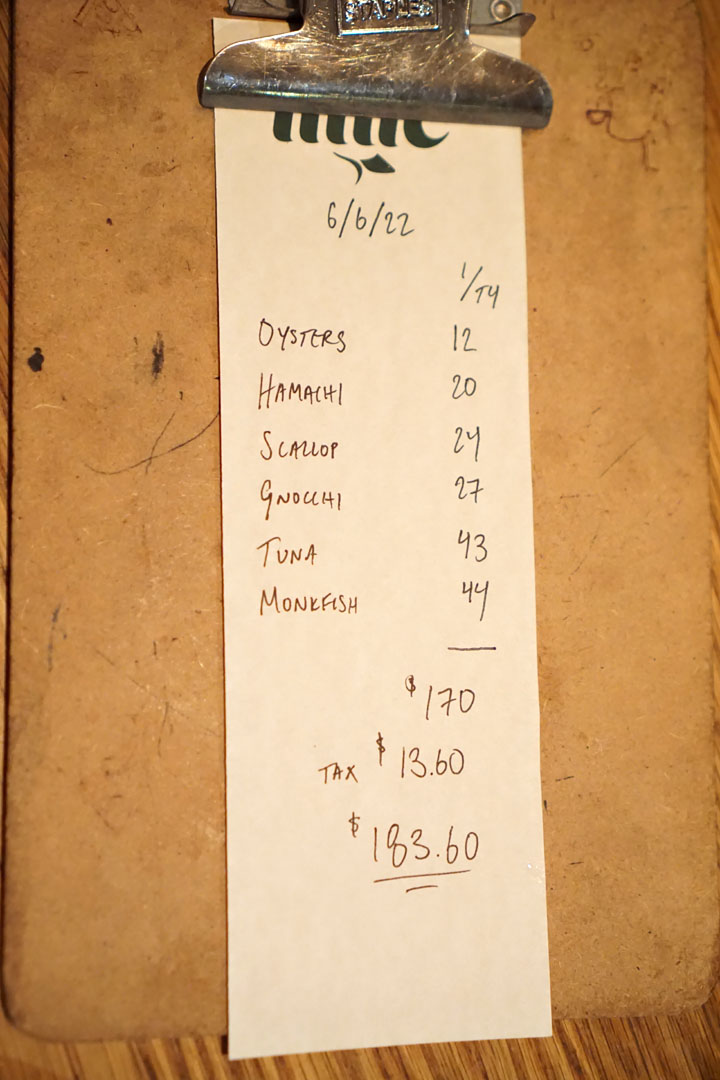 STAPLES
6/6/22
1/TY
OYSTERS 12
HAMACHI 20
SCALLOP 24
GNOCCHI 27
TUNA 43
MONKFISH 44
$170
TAX $13.60
$183.60